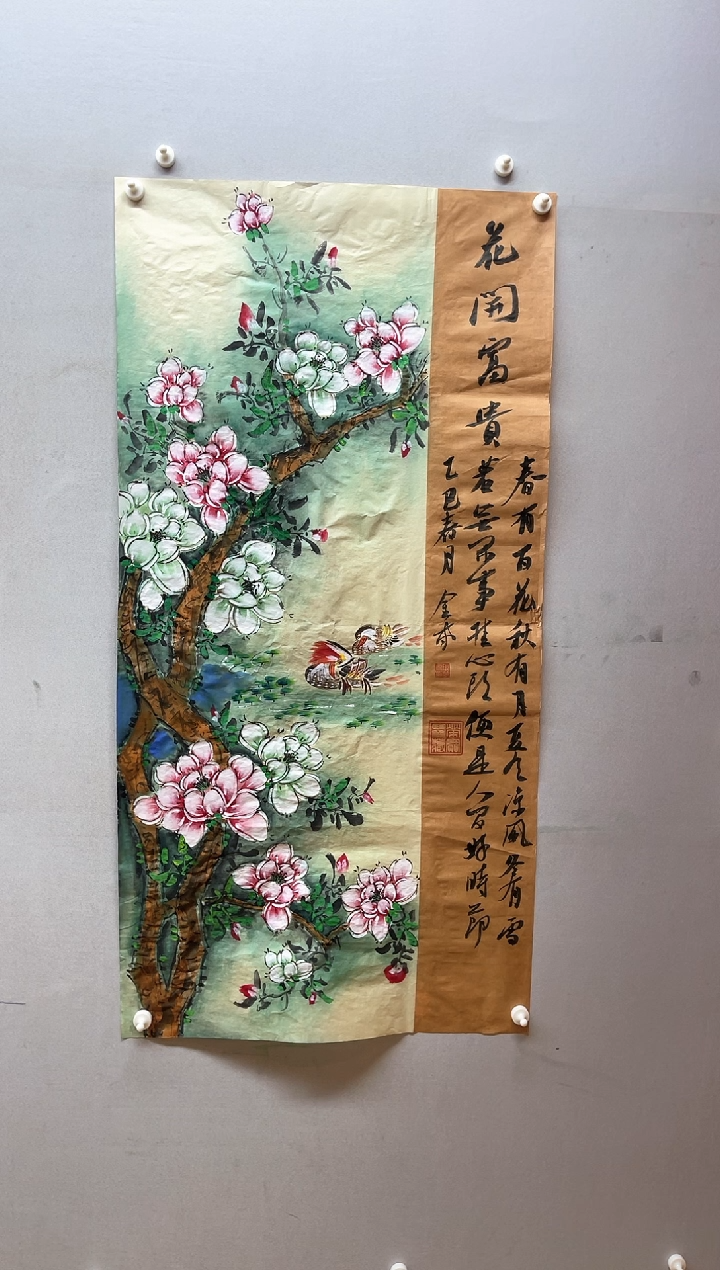 花開富貴
春有百花秋有月夏有涼風冬有雪
若無閑事挂心頭便是人間好時節
乙巳春月